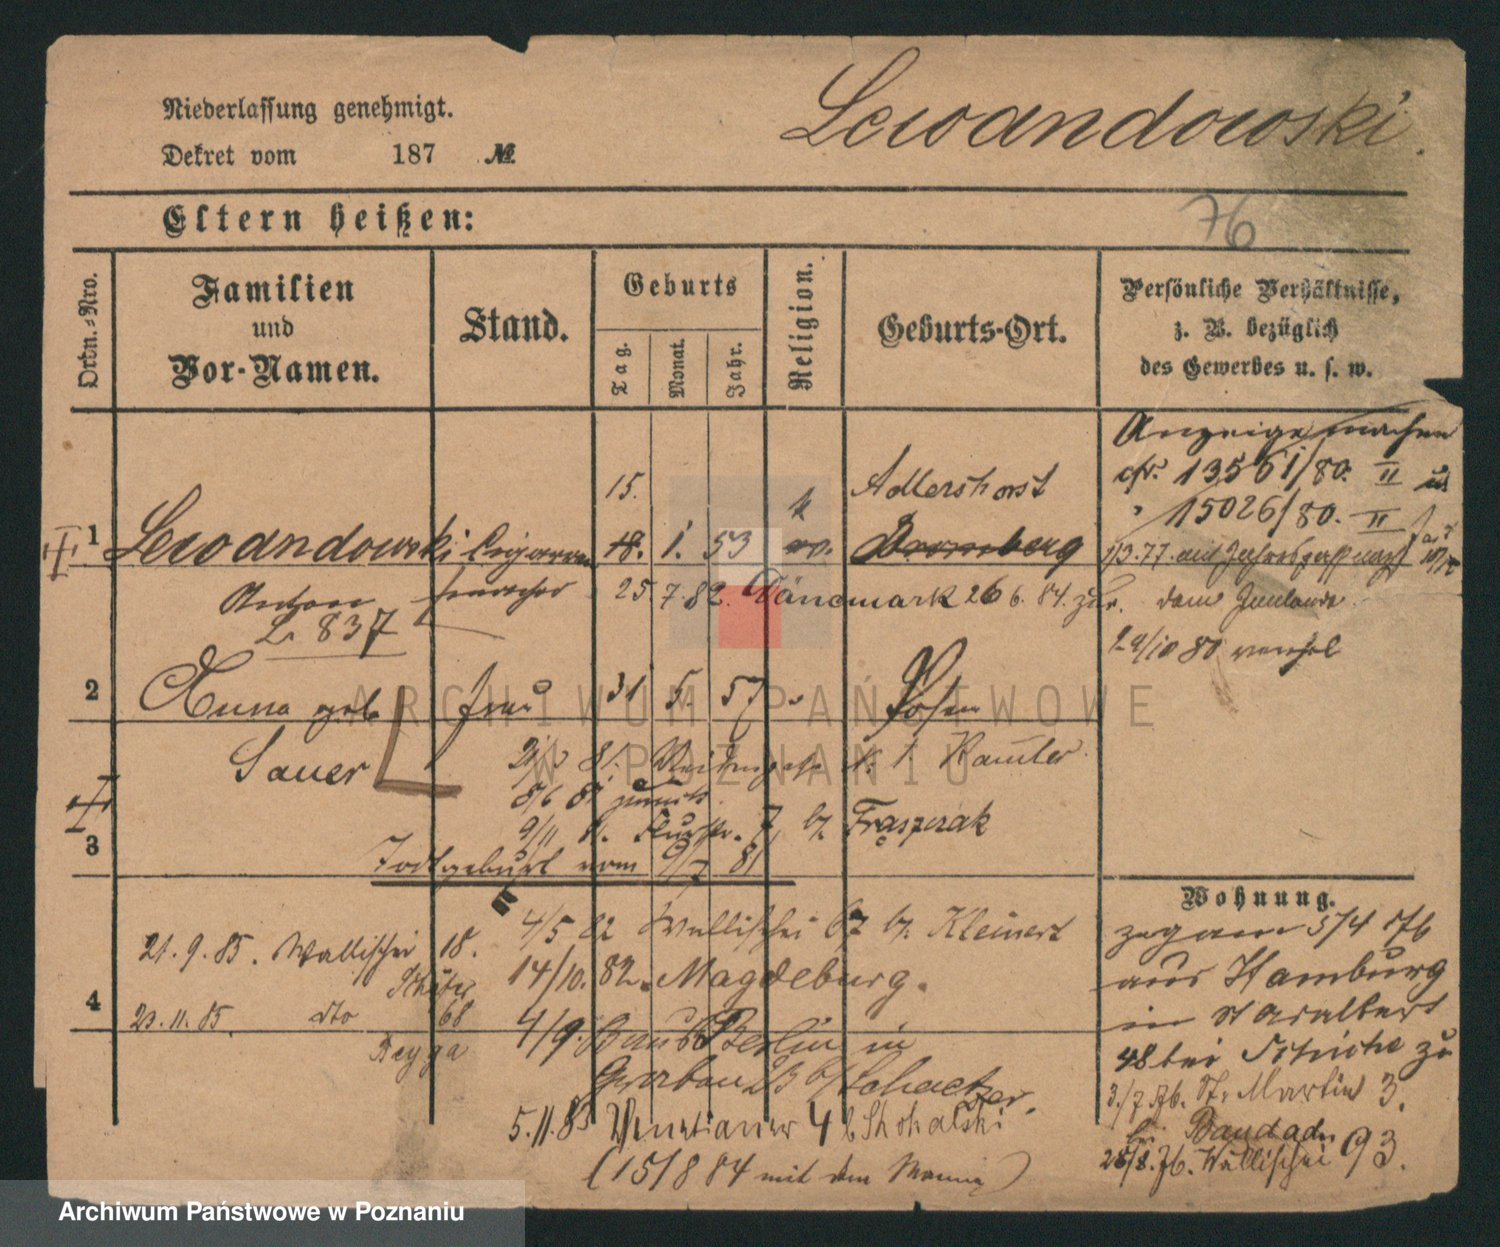 Niederlassung genehmigt.
Lewandowski.
Dekret vom 187 №
76
Eltern heißen:
Ordn.-Nro.
Familien
und
Vor-Namen.
Stand.
Geburts
Tag.
Monat.
Jahr.
Religion.
Geburts-Ort.
Persönliche Verhältnisse,
z. B. bezüglich
des Gewerbes u. s. w.
Anzeige machen
cfr. 13561/80. II
15026/80. II
15. Adlershorst
k
1 Lewandowski Cigarren 18. 1. 53 Bromberg
Anton macher 25.7.82. Dänemark 26 6. 84. zur.
L. 837
29/10 80
2 Anna geb. Frau 31 5. 57 Posen
Sauer
81. № 1. Ramler
8/6 81 zurück
9/11 81. Flurstr. 7, b. Frąszczak
3
Todtgeburt vom 9/7 81
Wohnung.
4/5 82 Wallischei 67 b. Kleinert
zugam 5/4 76
aus Hamburg
in St Adalbert
48 bei zu
3./7. 76. St. Martin 3.
bei
28/8. 76. Wallischei 93.
21. 9. 85. Wallischei 18.
14/10. 82. Magdeburg.
4 23. 11. 85. dto 68
Reyga
4/9. Berlin in
b/ Schaetzer.
5.11.83 Venetianer 4 b Skohalski
(15/8 84 mit dem Manne)
ARCHIWUM PAŃSTWOWE
W POZNANIU
Archiwum Państwowe w Poznaniu